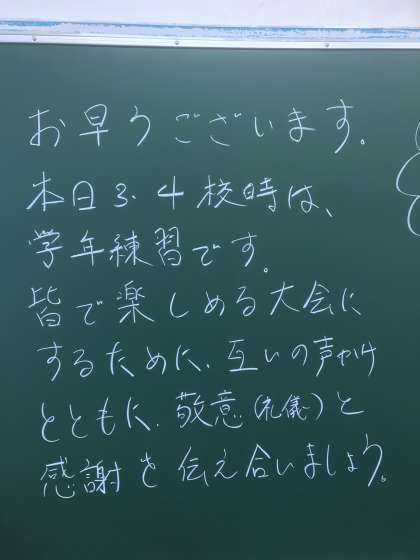 お早うございます。
本日3.4校時は、
学年練習です。
皆で楽しめる大会に
するために、互いの声かけ
とともに、敬意(礼儀)と
感謝を伝え合いましょう。